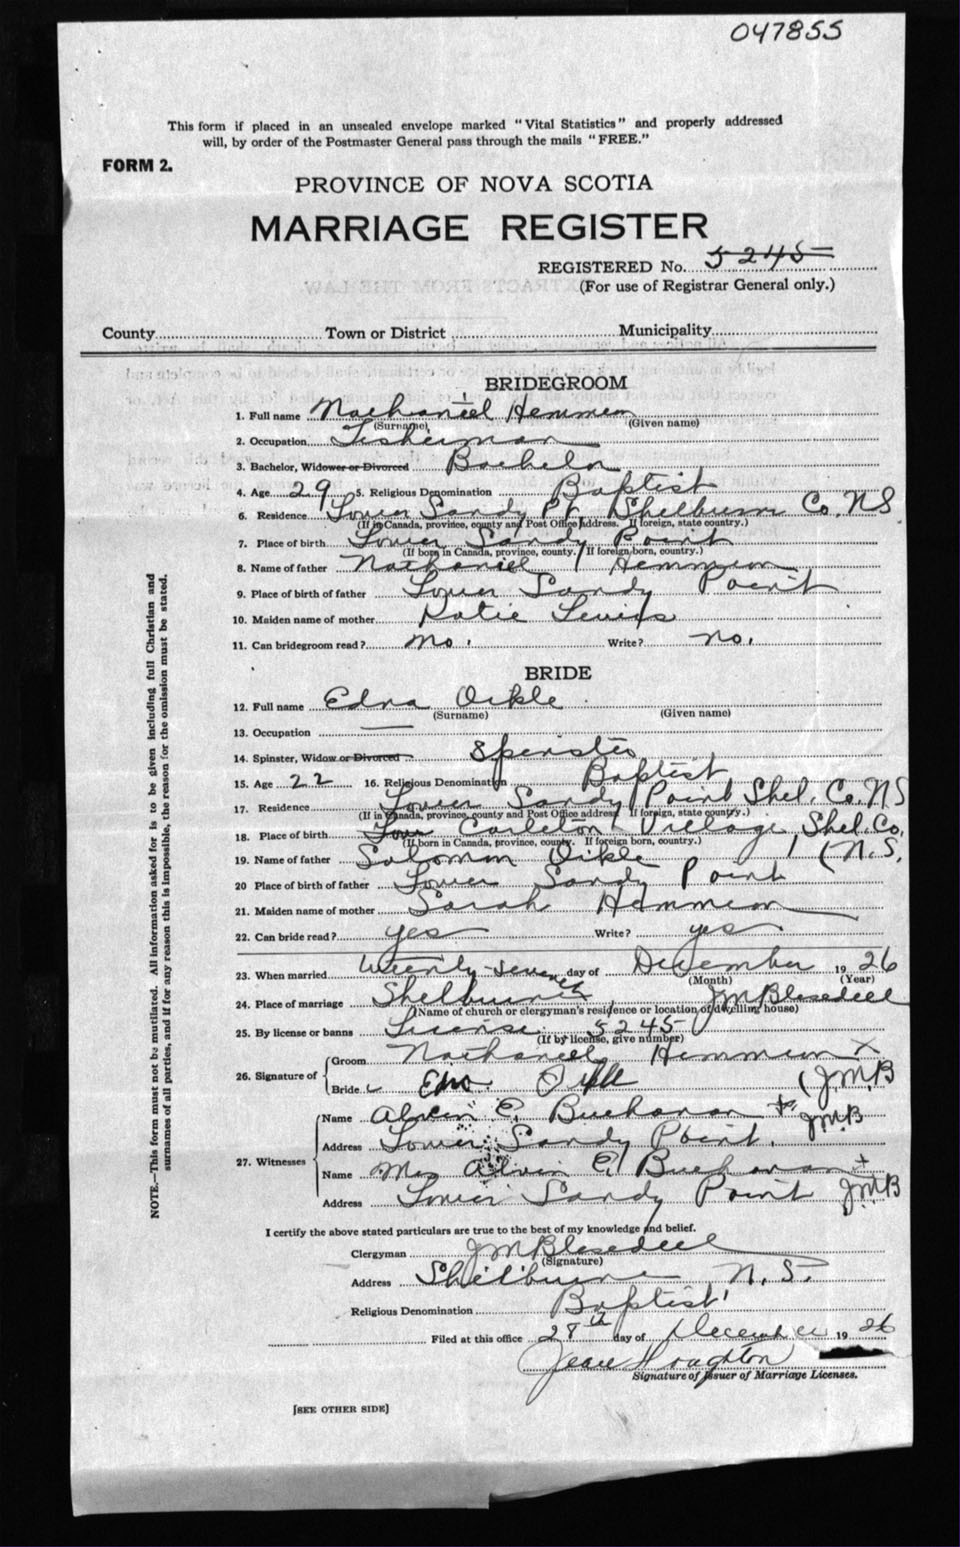 047855
This form if placed in an unsealed envelope marked "Vital Statistics" and properly addressed
will, by order of the Postmaster General pass through the mails "FREE."
FORM 2.
PROVINCE OF NOVA SCOTIA
MARRIAGE REGISTER
REGISTERED No. 5245
(For use of Registrar General only.)
County Town or District Municipality
BRIDEGROOM
1. Full name Nathaniel Hemmeon
(Surname) (Given name)
2. Occupation Fisherman
3. Bachelor, Widower or Divorced Bachelor
4. Age 29 5. Religious Denomination Baptist
6. Residence Lower Sandy Pt. Shelburne Co. NS
(If in Canada, province, county and Post Office address. If foreign, state country.)
7. Place of birth Lower Sandy Point
(If born in Canada, province, county. If foreign born, country.)
8. Name of father Nathaniel Hemmeon
9. Place of birth of father Lower Sandy Point
10. Maiden name of mother Katie Lewis
11. Can bridegroom read? no. Write? no.
BRIDE
12. Full name Edna Oikle
(Surname) (Given name)
13. Occupation —
14. Spinster, Widow or Divorced Spinster
15. Age 22 16. Religious Denomination Baptist
17. Residence Lower Sandy Point Shel. Co. NS
(If in Canada, province, county and Post Office address If foreign, state country.)
18. Place of birth Low Carleton Village, Shel. Co.
(If born in Canada, province, county. If foreign born, country.)
19. Name of father Solomon Oikle (N.S.
20 Place of birth of father Lower Sandy Point
21. Maiden name of mother Sarah Hemmeon
22. Can bride read? yes Write? yes
23. When married twenty-seventh day of December 1926
(Month) (Year)
24. Place of marriage Shelburne JM Blesedell
(Name of church or clergyman's residence or location of dwelling house)
25. By license or banns License 5245
(If by license, give number)
26. Signature of
Groom Nathaniel Hemmeon X
Bride Edna Oikle (J.M.B
27. Witnesses
Name Alvin E. Buchanan + JMB
Address Lower Sandy Point.
Name Mrs Alvin E. Buchanan +
Address Lower Sandy Point JMB
I certify the above stated particulars are true to the best of my knowledge and belief.
Clergyman JM Blesedell
(Signature)
Address Shelburne N.S.
Religious Denomination Baptist
Filed at this office 28th day of December 1926
Jean Houghton
Signature of Issuer of Marriage Licenses.
[SEE OTHER SIDE]
NOTE.—This form must not be mutilated. All information asked for is to be given including full Christian and
surnames of all parties, and if for any reason this is impossible, the reason for the omission must be stated.